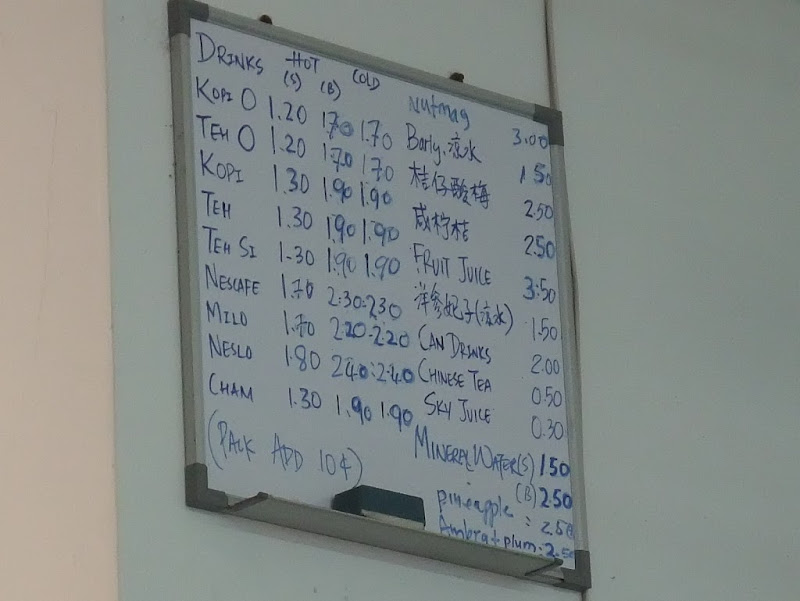 DRINKS HOT COLD
(S) (B)
KOPI O 1.20 1.70 1.70
TEH O 1.20 1.70 1.70
KOPI 1.30 1.90 1.90
TEH 1.30 1.90 1.90
TEH SI 1-30 1.90 1.90
NESCAFE 1.70 2:30:230
MILO 1.70 2.20:2.20
NESLO 1.80 240:2.40
CHAM 1.30 1.90 1.90
(PACK ADD 10¢)
Nutmag 3.00
Barly.凉水 1.50
桔仔酸梅 2.50
咸柠桔 2.50
FRUIT JUICE 3.50
洋參杞子(凉水) 1.50
CAN DRINKS 2.00
CHINESE TEA 0.50
SKY JUICE 0.30
MINERAL WATER(S) 150
(B) 2.50
pineapple : 2.50
Ambrat plum: 2.50